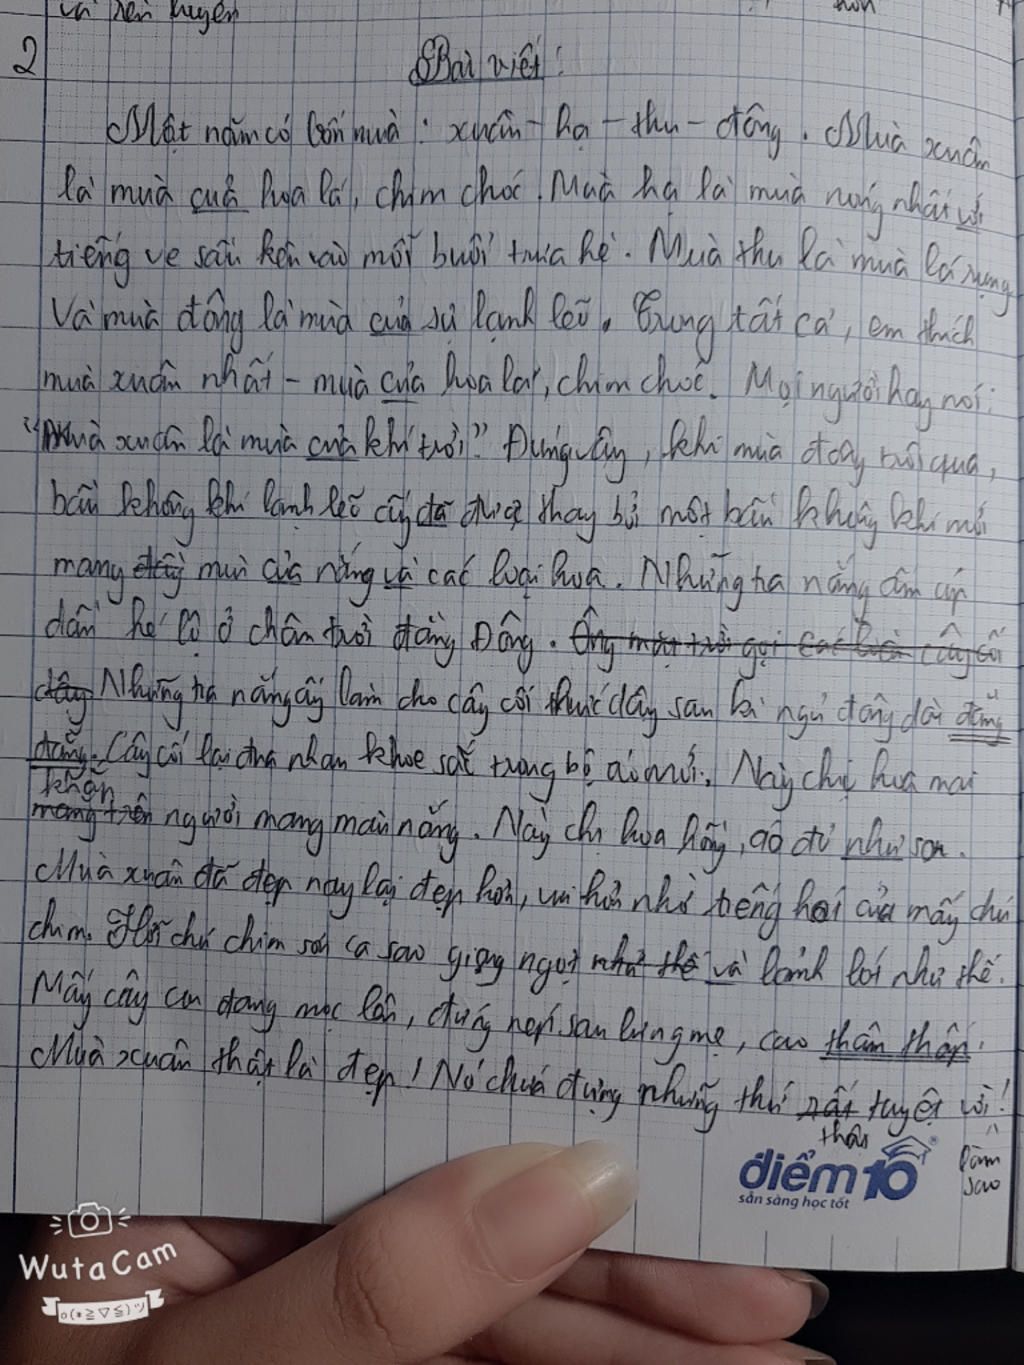 và rèn luyện
hơn
2
Bài viết:
Một năm có bốn mùa: xuân - hạ - thu - đông. Mùa xuân
là mùa của hoa lá, chim chóc. Mùa hạ là mùa nóng nhất với
tiếng ve sầu kêu vào mỗi buổi trưa hè. Mùa thu là mùa lá rụng
Và mùa đông là mùa của sự lạnh lẽo. Trong tất cả, em thích
mùa xuân nhất - mùa của hoa lá, chim chóc. Mọi người hay nói:
"Mùa xuân là mùa của khí trời." Đúng vậy, khi mùa đông trôi qua,
bầu không khí lạnh lẽo ấy đã được thay bởi một bầu không khí mới
mang đầy mùi của nắng và các loại hoa. Những tia nắng ấm áp
dần hé lộ ở chân trời đằng Đông. Ông mặt trời gọi các loài cây cối
dậy Những tia nắng ấy làm cho cây cối thức dậy sau kì ngủ đông dài đằng
đẵng. Cây cối lại đua nhau khoe sắc trong bộ áo mới. Này chị hoa mai
khăn
mang trên người mang màu nắng. Này chị hoa hồng, áo đỏ như son.
Mùa xuân đã đẹp nay lại đẹp hơn, vui hơn nhờ tiếng hót của mấy chú
chim. Hỡi chú chim sơn ca sao giọng ngọt như thế và lảnh lót như thế.
Mấy cây con đang mọc lên, đứng nép sau lưng mẹ, cao thân thấp.
Mùa xuân thật là đẹp! Nó chứa đựng những thứ rất tuyệt vời!
làm
sao
điểm 10
sẵn sàng học tốt
WutaCam
o(*≧▽≦)ツ